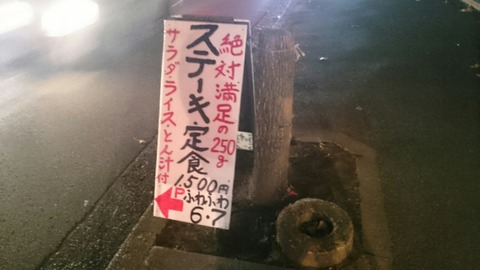 絶対満足の250g
ステーキ定食
サラダ・ライス・とん汁付
1,500円
P ふわふわ
6・7